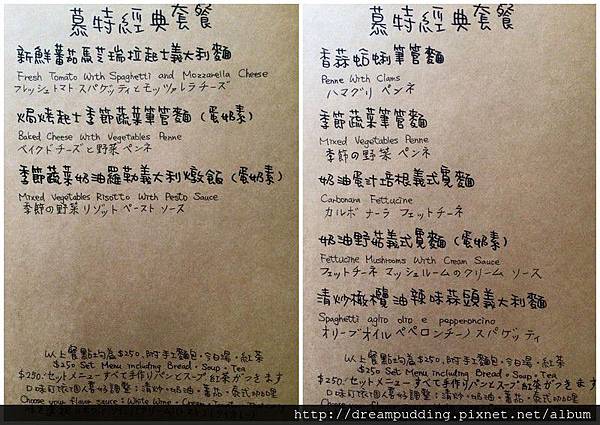 慕特經典套餐
新鮮蕃茄馬芝瑞拉起士義大利麵
Fresh Tomato With Spaghetti and Mozzarella Cheese
フレッシュトマト スパゲッティとモッツァレラチーズ
焗烤起士季節蔬菜筆管麵(蛋奶素)
Baked Cheese With Vegetables Penne
ベイクドチーズと野菜 ペンネ
季節蔬菜奶油羅勒義大利燉飯(蛋奶素)
Mixed Vegetables Risotto With Pesto Sauce
季節の野菜リゾット ペースト ソース
以上餐點均為$250,附手工麵包・今日湯・紅茶
$250 Set Menu including Bread・Soup・Tea
$250:セットメニューすべて手作りパンとスープ紅茶がつきます
口味可依個人喜好調整:清炒・奶油・蕃茄・泰式咖哩
Choose your flavor sauce: White Wine・Cream
慕特經典套餐
香蒜蛤蜊筆管麵
Penne With Clams
ハマグリ ペンネ
季節蔬菜筆管麵
Mixed Vegetables Penne
季節の野菜 ペンネ
奶油蛋汁培根義式寬麵
Carbonara Fettucine
カルボナーラ フェットチーネ
奶油野菇義式寬麵(蛋奶素)
Fettucine Mushrooms With Cream Sauce
フェットチーネ マッシュルームのクリーム ソース
清炒橄欖油辣味蒜頭義大利麵
Spaghetti aglio olio e pepperoncino
オリーブオイル ペペロンチーノ スパゲッティ
以上餐點均為$250,附手工麵包・今日湯・紅茶
$250 Set Menu including Bread・Soup・Tea
$250:セットメニューすべて手作りパンとスープ紅茶がつきます
口味可依個人喜好調整:清炒・奶油・蕃茄・泰式咖哩
http://dreampudding.pixnet.net/album